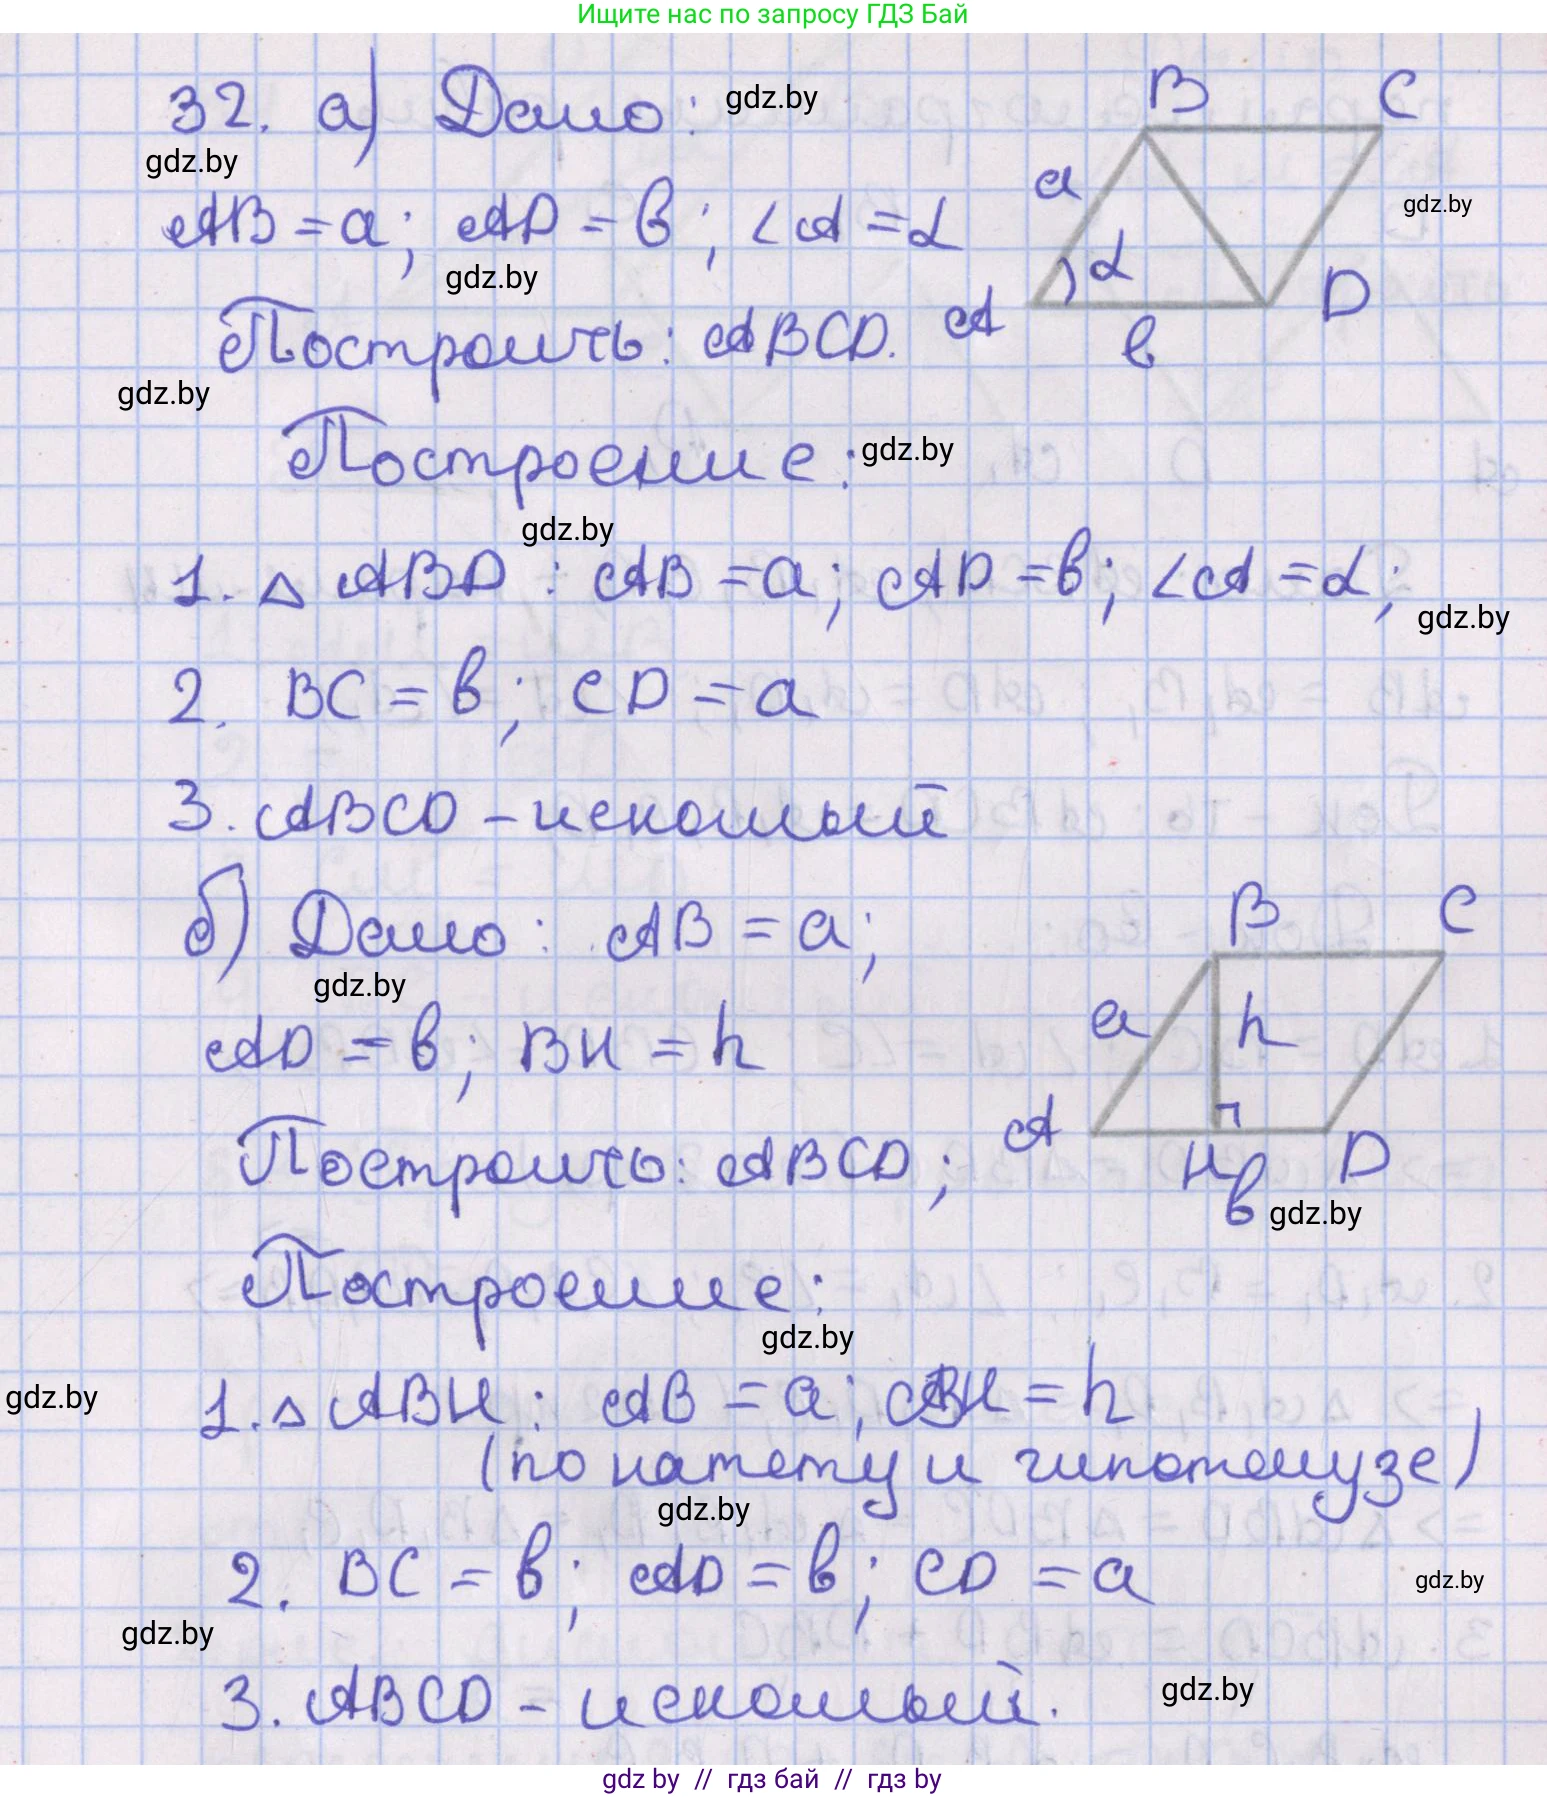 Ищите нас по запросу ГДЗ Бай
32. а) Дано: gdz.by
B C
gdz.by
a
gdz.by
AB = a; AD = b; ∠A = α
α
gdz.by
A D
Построить: ABCD.
b
gdz.by
Построение: gdz.by
gdz.by
1. △ ABD : AB = a; AD = b; ∠A = α;
gdz.by
2. BC = b; CD = a
3. ABCD – искомый
б) Дано: AB = a;
B C
gdz.by
a h
AD = b; BH = h
A H D
Построить: ABCD;
b gdz.by
Построение:
gdz.by
gdz.by
1. △ ABH : AB = a; BH = h
(по катету и гипотенузе)
gdz.by
2. BC = b; AD = b; CD = a
gdz.by
gdz.by
3. ABCD – искомый.
gdz.by
gdz by // гдз бай // гдз by